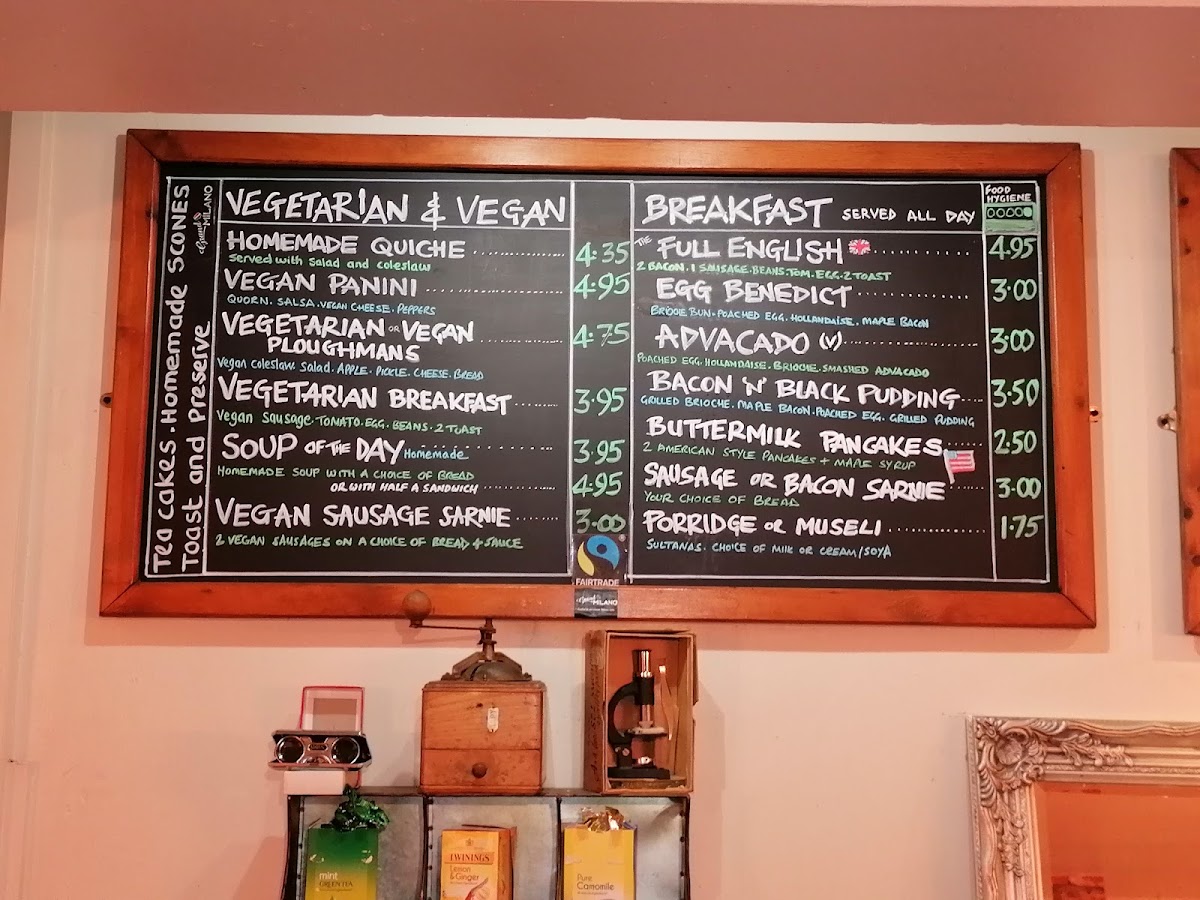 Tea cakes . Homemade Scones
Toast and Preserve
Grand
MILANO
VEGETARIAN & VEGAN
HOMEMADE QUICHE ............ 4.35
Served with Salad and coleslaw
VEGAN PANINI ............ 4.95
QUORN . SALSA . VEGAN CHEESE . PEPPERS
VEGETARIAN OR VEGAN ............ 4.75
PLOUGHMANS
Vegan coleslaw Salad . APPLE . PICKLE . CHEESE . BREAD
VEGETARIAN BREAKFAST ..... 3.95
Vegan Sausage . TOMATO . EGG . BEANS . 2 TOAST
SOUP OF THE DAY Homemade ............ 3.95
HOMEMADE SOUP WITH A CHOICE OF BREAD
OR WITH HALF A SANDWICH ............ 4.95
VEGAN SAUSAGE SARNIE ....... 3.00
2 VEGAN SAUSAGES ON A CHOICE OF BREAD & SAUCE
FAIRTRADE
Grand MILANO
BREAKFAST SERVED ALL DAY
FOOD
HYGIENE
THE FULL ENGLISH ............ 4.95
2 BACON . 1 SAUSAGE . BEANS . TOM . EGG . 2 TOAST
EGG BENEDICT ............ 3.00
BRIOCHE BUN . POACHED EGG . HOLLANDAISE . MAPLE BACON
ADVACADO (V) ............ 3.00
POACHED EGG . HOLLANDAISE . BRIOCHE . SMASHED ADVACADO
BACON 'N' BLACK PUDDING ..... 3.50
GRILLED BRIOCHE . MAPLE BACON . POACHED EGG . GRILLED PUDDING
BUTTERMILK PANCAKES ...... 2.50
2 AMERICAN STYLE PANCAKES + MAPLE SYRUP
SAUSAGE OR BACON SARNIE ...... 3.00
YOUR CHOICE OF BREAD
PORRIDGE OR MUSELI ............ 1.75
SULTANAS . CHOICE OF MILK OR CREAM/SOYA
mint
GREEN TEA
TWININGS
Lemon
& Ginger
Pure
Camomile